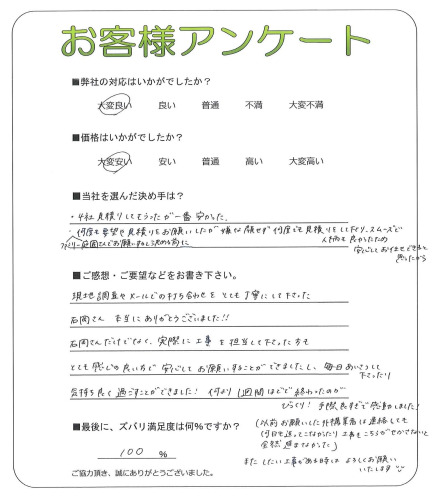 お客様アンケート
■弊社の対応はいかがでしたか？
大変良い 良い 普通 不満 大変不満
■価格はいかがでしたか？
大変安い 安い 普通 高い 大変高い
■当社を選んだ決め手は？
・4社見積りしてもらったが一番安かった。
・何度も要望や見積りをお願いしたが嫌な顔せず何度でも見積りをして下さり、スムーズで
石岡さんでお願いすると決める前に
人柄も良かったため
安心しておまかせできると
思ったから
■ご感想・ご要望などをお書き下さい。
現地調査やメールでの打ち合わせをとても丁寧にして下さった
石岡さん 本当にありがとうございました!!
石岡さんだけでなく、実際に工事を担当して下さった方も
とても感じの良い方で安心してお願いすることができましたし、毎日あいさつして
下さったり
気持ち良く過ごすことができました! 何より1週間ほどで終わったのが
びっくり! 手際良すぎで感動しました!
■最後に、ズバリ満足度は何％ですか？
(以前お願いした外構業者は連絡しても
何日も返ってこなかったり工事もこちらがせかさないと
全然進まなかった)
100 ％
またしたい工事がある時はよろしくお願い
いたします
ご協力頂き、誠にありがとうございました。